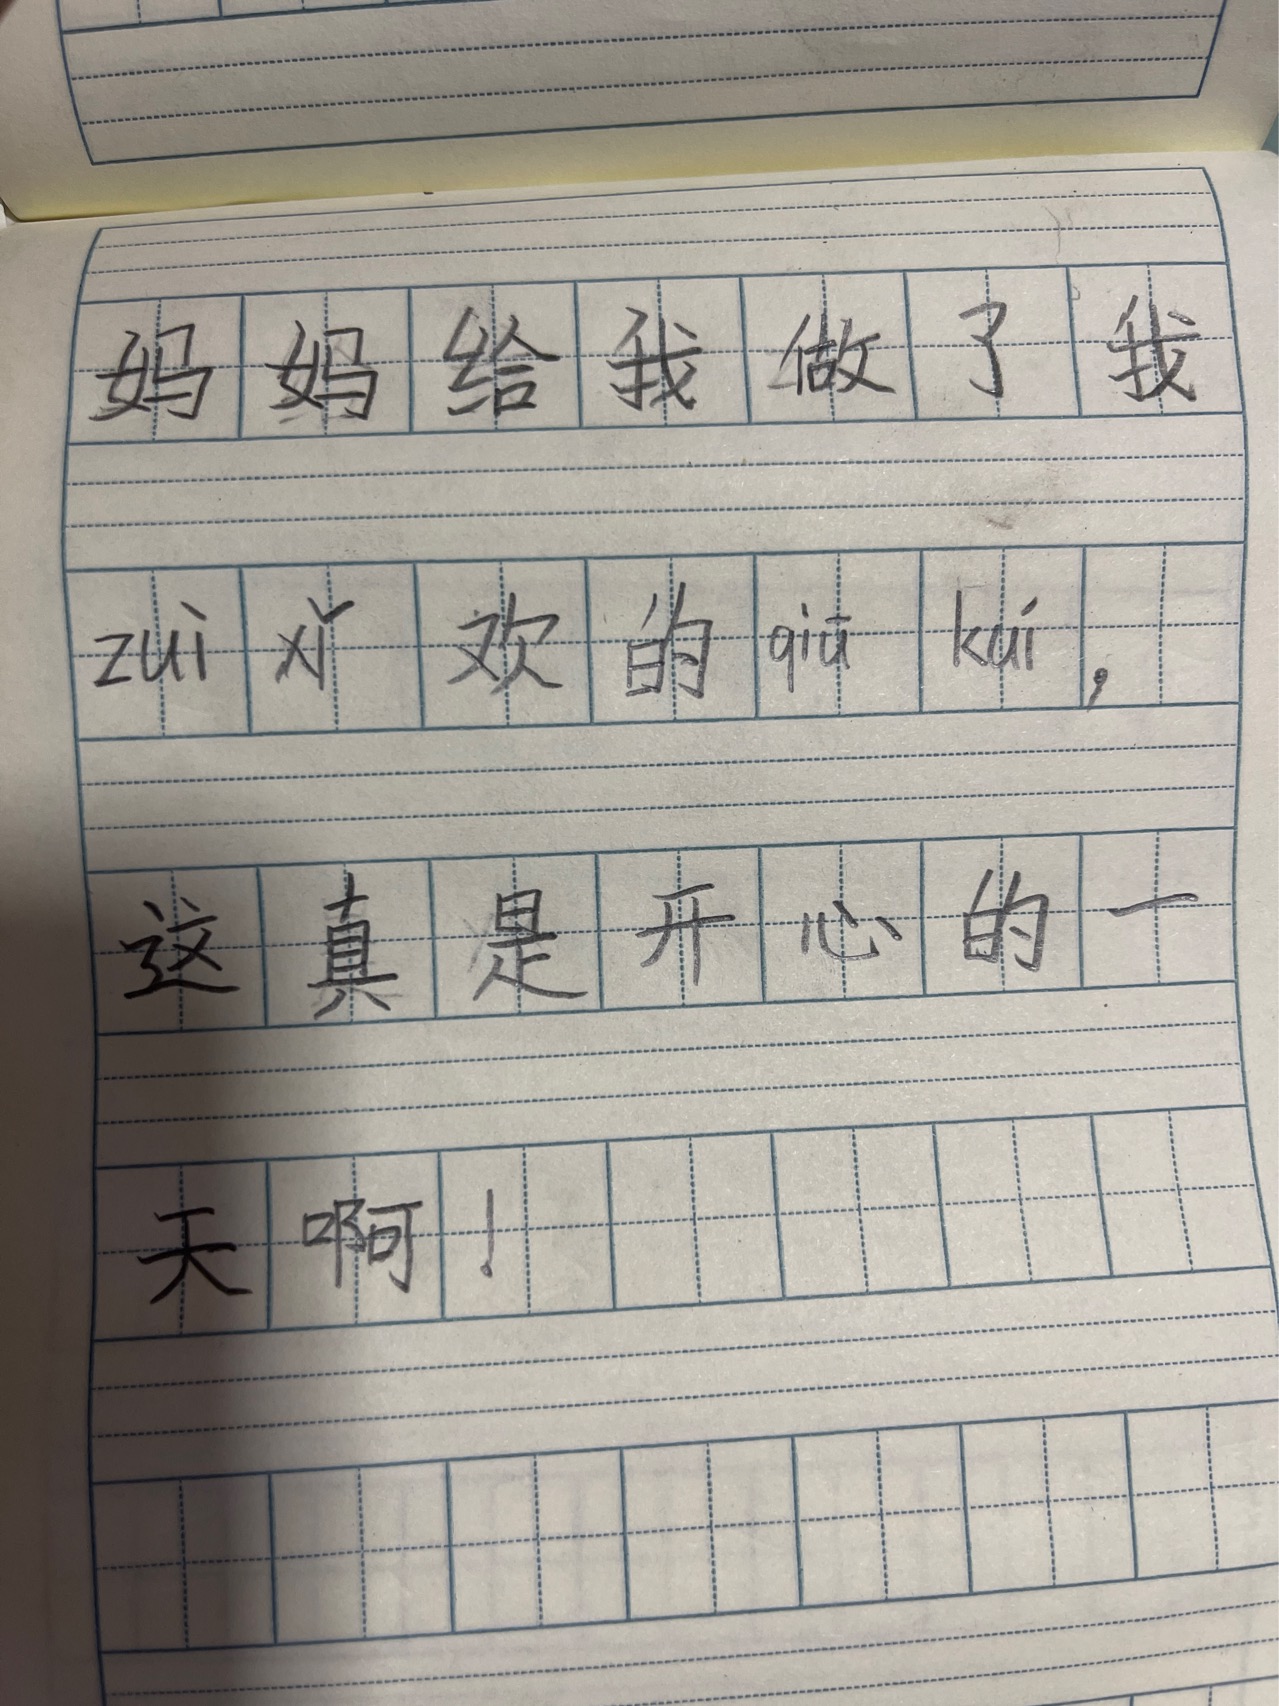 妈妈给我做了我
zuì xǐ欢的qiū kuí，
这真是开心的一
天啊！